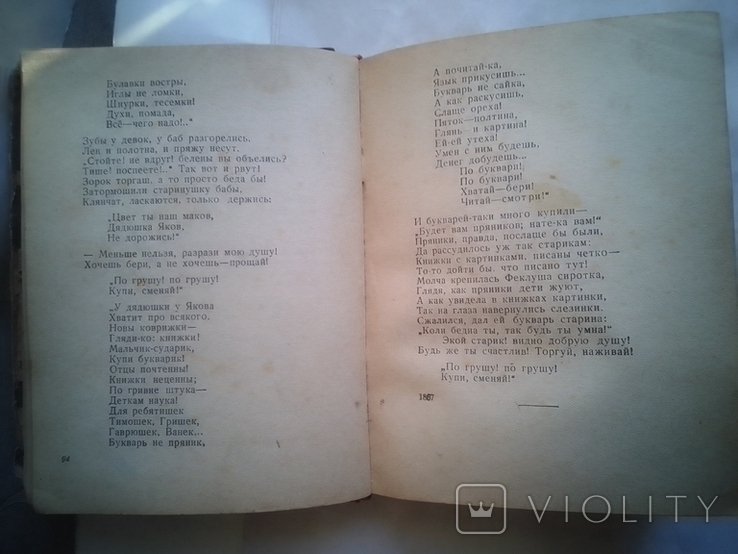 Булавки востры,
Иглы не ломки,
Шнурки, тесемки!
Духи, помада,
Всё—чего надо!.."
Зубы у девок, у баб разгорелись,
Лен и полотна, и пряжу несут.
„Стойте! не вдруг! белены вы объелись?
Тише! поспеете!.." Так вот и рвут!
Зорок торгаш, а то просто беда бы!
Затормошили старинушку бабы,
Клянчат, ласкаются, только держись:
„Цвет ты наш маков,
Дядюшка Яков,
Не дорожись!"
— Меньше нельзя, разрази мою душу!
Хочешь бери, а не хочешь—прощай!
„По грушу! по грушу!
Купи, сменяй!"
„У дядюшки у Якова
Хватит про всякого.
Новы коврижки—
Гляди-ко: книжки!
Мальчик-сударик,
Купи букварик!
Отцы почтенны!
Книжки неценны;
По гривне штука—
Деткам наука!
Для ребятишек
Тимошек, Гришек,
Гаврюшек, Ванек...
Букварь не пряник,
94
А почитай-ка,
Язык прикусишь...
Букварь не сайка,
А как раскусишь,
Слаще ореха!
Пяток—полтина,
Глянь—и картина!
Ей-ей утеха!
Умен с ним будешь,
Денег добудешь...
По буквари!
По буквари!
Хватай—бери!
Читай—смотри!"
И букварей-таки много купили—
„Будет вам пряников; нате-ка вам!"
Пряники, правда, послаще бы были,
Да рассудилось уж так старикам:
Книжки с картинками, писаны четко—
То-то дойти бы, что писано тут!
Молча крепилась Феклуша сиротка,
Глядя, как пряники дети жуют,
А как увидела в книжках картинки,
Так на глаза навернулись слезинки.
Сжалился, дал ей букварь старина:
„Коли бедна ты, так будь ты умна!"
Экой старик! видно добрую душу!
Будь же ты счастлив! Торгуй, наживай!
„По грушу! по грушу!
Купи, сменяй!"
1867
VIOLITY